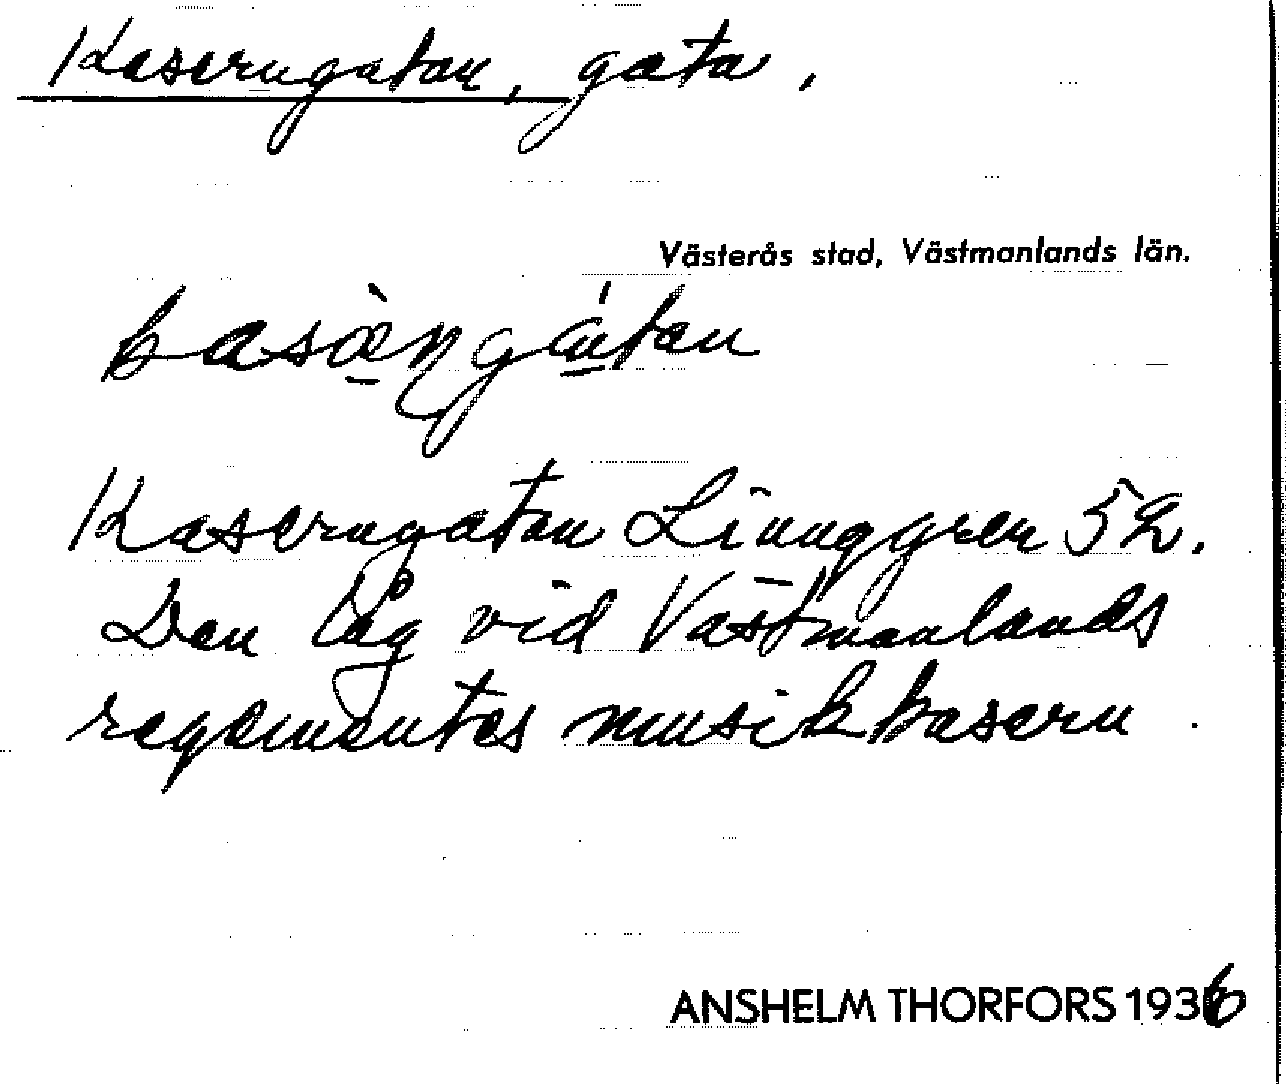 Kaserngatan, gata,
Västerås stad, Västmanlands län.
kasæ̀ŋgátan
Kaserngatan Linnggren 52.
Den låg vid Västmanlands
regementes musikkasern.
ANSHELM THORFORS 1936